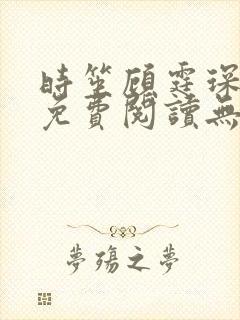 時笙顧霆琛
免費閱讀無
夢殤之夢